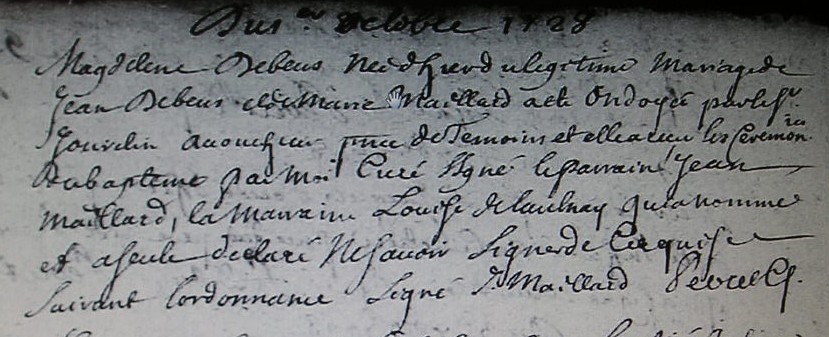 Dus er octobre 1728
Magdelene Debeus Neé d'hierd ulegitime Mariagede
Jean Debeus et de Marie Maillard aeté Ondoyeé par le Sr.
Jourdin acoucheur de Temoins et elle a recu les Ceremonies
Dubapteme par Moi Curé Signé le parrain Jean
Maillard, la Marraine Louise Delaulnay qui a nommé
et a seule declaré Ne Savoir Signer de Ce requise
Suivant lordonnance Signé J Maillard